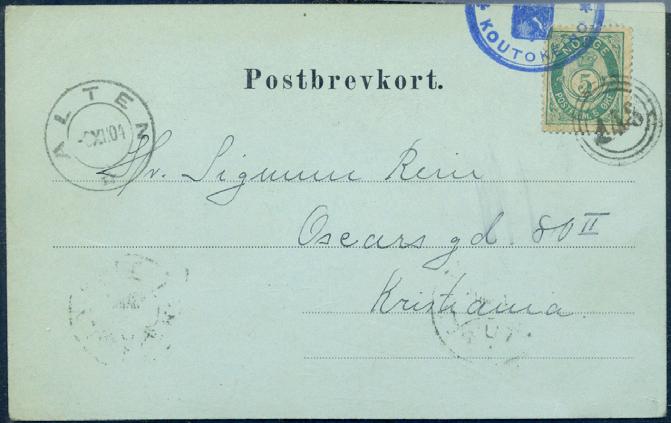 KOUTOKEINO
NORGE
5
POSTFRIM. 5 ØRE
Postbrevkort.
ALTEN
-6 XII 01
Hr. Sigmun Rein
Oscars gd. 80 II
Kristiania